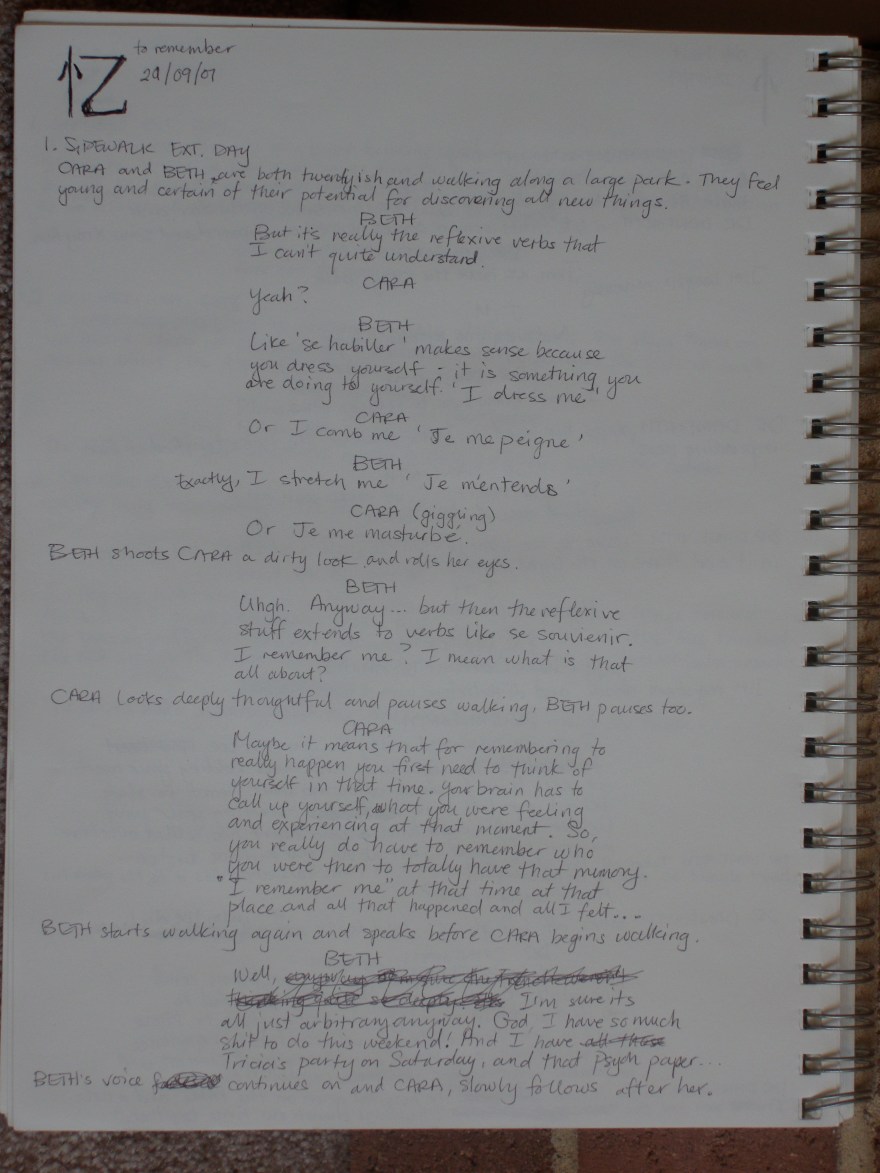 忆 to remember
29/09/07
1. SIDEWALK EXT. DAY
CARA and BETH are both twentyish and walking along a large park. They feel
young and certain of their potential for discovering all new things.
BETH
But it's really the reflexive verbs that
I can't quite understand.
CARA
Yeah?
BETH
Like 'se habiller' makes sense because
you dress yourself - it is something you
are doing to yourself. 'I dress me'
CARA
Or I comb me 'Je me peigne'
BETH
Exactly, I stretch me 'Je m'entends'
CARA (giggling)
Or Je me masturbé.
BETH shoots CARA a dirty look and rolls her eyes.
BETH
Uhgh. Anyway... but then the reflexive
stuff extends to verbs like se souvienir.
I remember me? I mean what is that
all about?
CARA looks deeply thoughtful and pauses walking, BETH pauses too.
CARA
Maybe it means that for remembering to
really happen you first need to think of
yourself in that time. Your brain has to
call up yourself, what you were feeling
and experiencing at that moment. So,
you really do have to remember who
you were then to totally have that memory.
"I remember me" at that time at that
place and all that happened and all I felt...
BETH starts walking again and speaks before CARA begins walking.
BETH
Well,
I'm sure its
all just arbitrary anyway. God, I have so much
shit to do this weekend! And I have all those
Tricia's party on Saturday, and that Psych paper...
BETH's voice continues on and CARA, slowly follows after her.